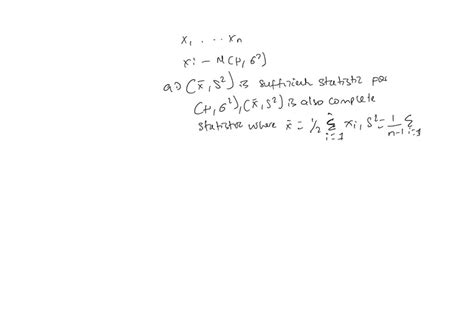 x₁ . . . xₙ
xi ~ N(μ, σ²)
a) (x̄, S²) is sufficient statistic for
(μ, σ²), (x̄, S²) is also complete
statistic where x̄ = 1/2 Σ_{i=1}^{n} xi, S² = 1/(n-1) Σ_{i=1}